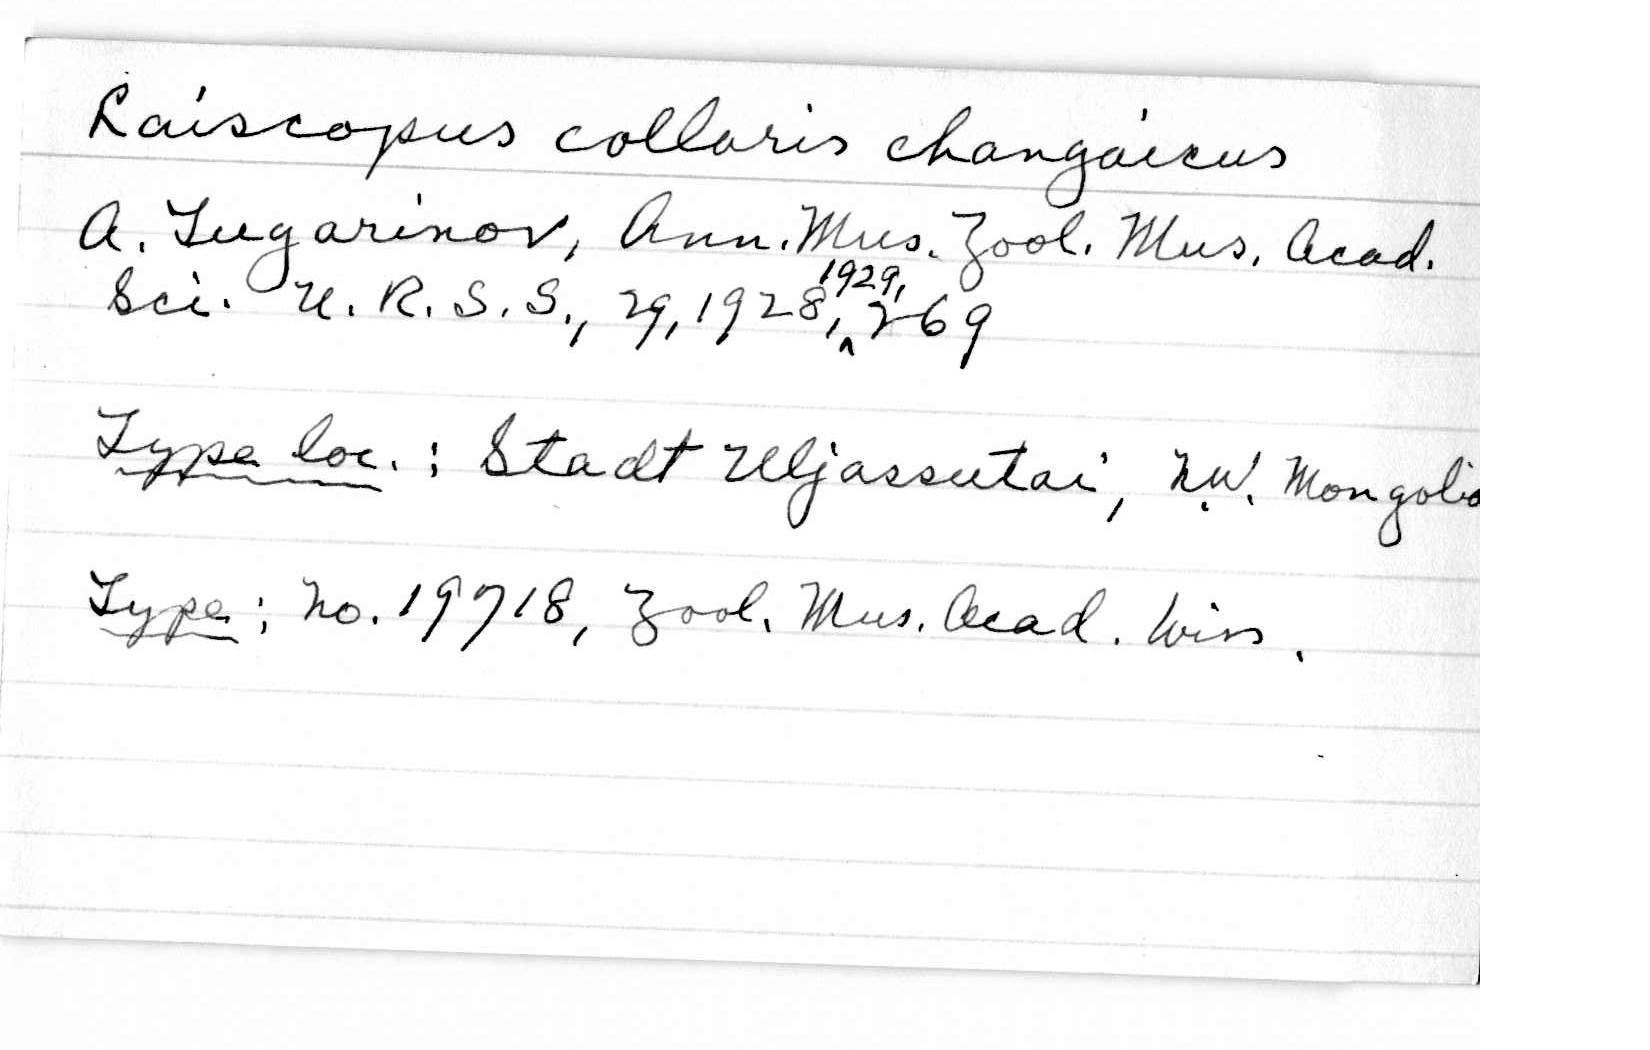 Laiscopus collaris changaicus
A. Tugarinov, Ann. Mus. Zool. Mus. Acad.
Sci. U. R. S. S., 29, 1928, 1929, 269
Type loc. : Stadt Uljassutai, N.W. Mongolia
Type ; No. 19718, Zool. Mus. Acad. Wiss.